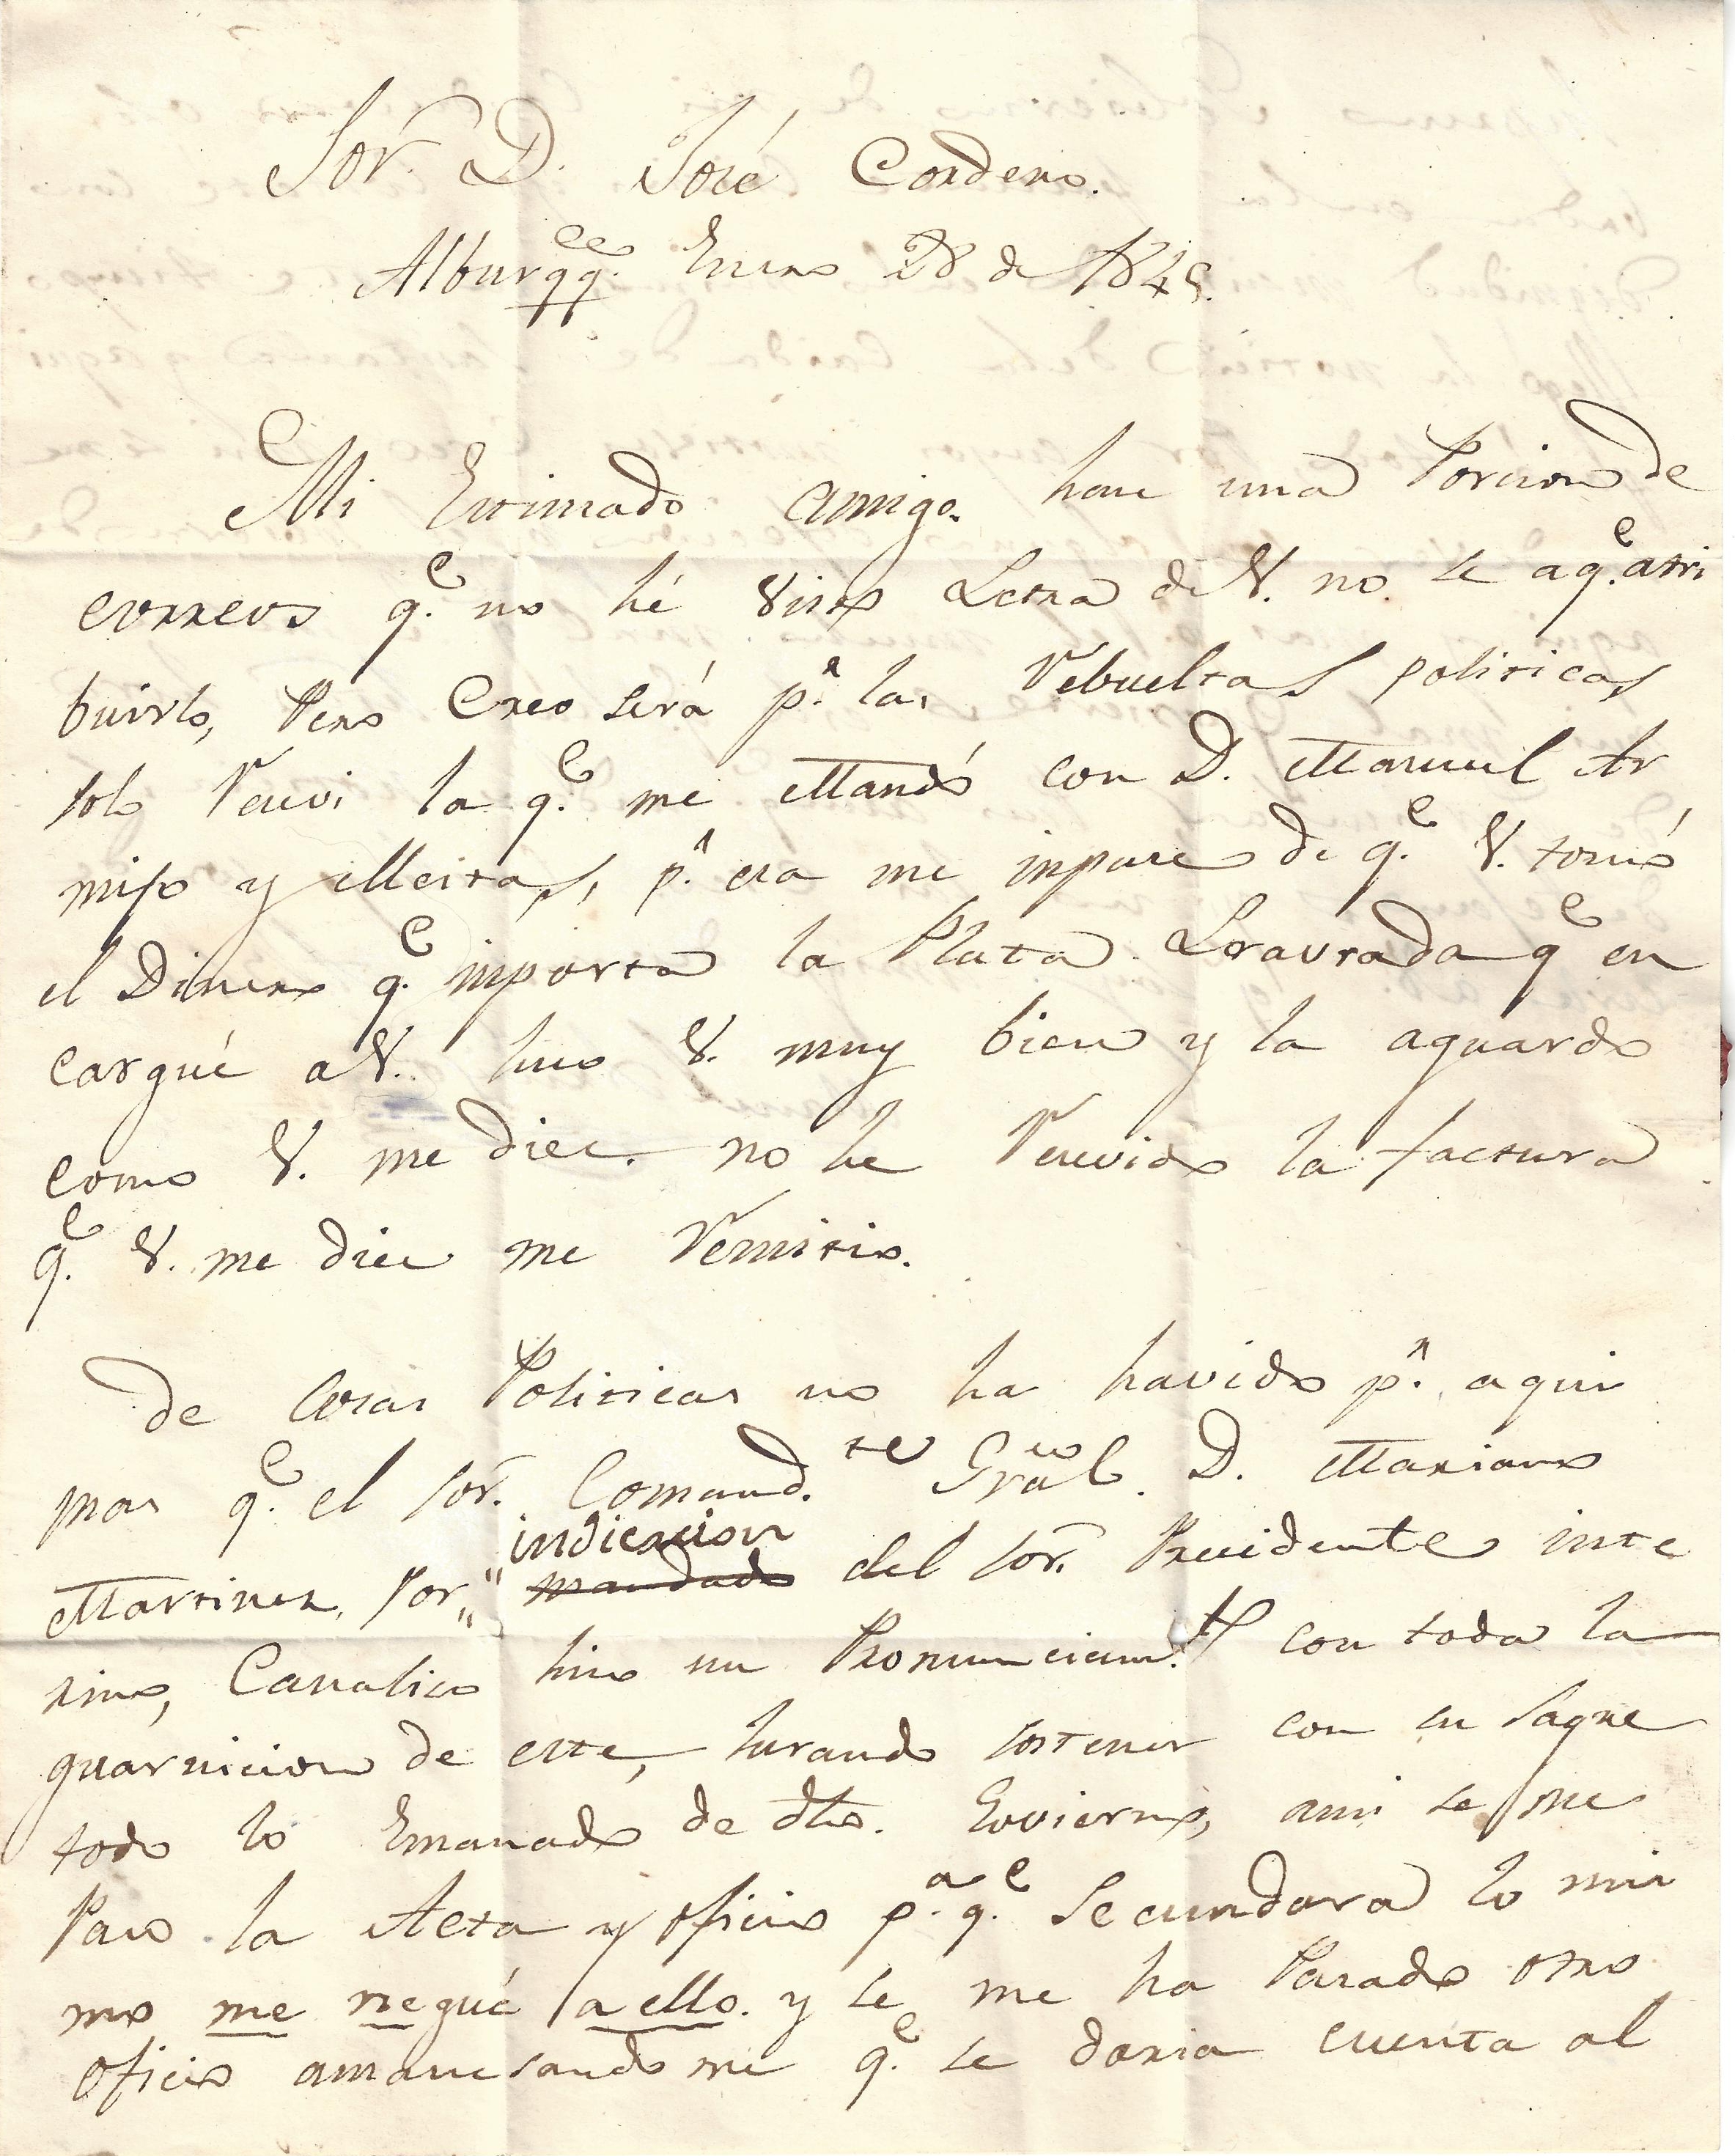 Sor. D. José Cordero.
Alburqqee. Enero 28 de 1845.
Mi Estimado amigo. hace una Porcion de
correos qe. no hé visto Letra de V. no se a qe. atri
buirlo, Pero Creo será pr. las Rebueltas politicas
solo Recivi la qe. me Mandó con D. Manuel Ar
mijo y Meitas, pr. esa me inpuse de qe. V. tomó
el Dinero qe. inporta la Plata Lavrada qe en
cargué a V. hiso V. muy bien y la aguardo
como V. me dice. no he Recivido la factura
qe. V. me dice me Remitio.
De Cosas Politicas no ha havido pr. aqui
mas qe. el sor. Comandte. Gral. D. Mariano
Martinez, Por indicacion mandado del sor. Precidente inte
rino, Canaliso hiso un Pronunciamto. con toda la
guarnicion de este, Jurando sostener con su sagre
todo lo Emanado de dho. Govierno, ami se me
Paso la Acta y oficio pa. qe. Secundara lo mis
mo me negué a ello. y se me ha Pasado otro
oficio amanesandome qe. se daria cuenta al